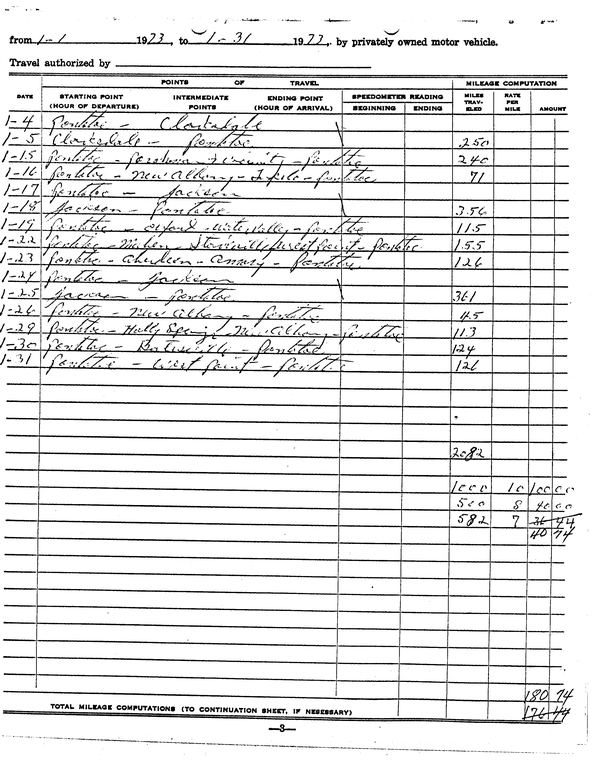 from 1-1 1973, to 1-31 1973, by privately owned motor vehicle.
Travel authorized by
POINTS OF TRAVEL MILEAGE COMPUTATION
DATE STARTING POINT (HOUR OF DEPARTURE) INTERMEDIATE POINTS ENDING POINT (HOUR OF ARRIVAL) SPEEDOMETER READING BEGINNING ENDING MILES TRAVELED RATE PER MILE AMOUNT
1-4 Pontotoc - Clarksdale
1-5 Clarksdale - Pontotoc 250
1-15 Pontotoc - - Pontotoc 240
1-16 Pontotoc - New Albany - Tupelo - Pontotoc 71
1-17 Pontotoc - Jackson
1-18 Jackson - Pontotoc 356
1-19 Pontotoc - Oxford - Water Valley - Pontotoc 115
1-22 Pontotoc - Maben - Starkville West Point - Pontotoc 155
1-23 Pontotoc - Aberdeen - Amory - Pontotoc 126
1-24 Pontotoc - Jackson
1-25 Jackson - Pontotoc 361
1-26 Pontotoc - New Albany - Pontotoc 45
1-29 Pontotoc - Holly Springs - New Albany - Pontotoc 113
1-30 Pontotoc - Batesville - Pontotoc 124
1-31 Pontotoc - West Point - Pontotoc 126
2082
1000 10 100 00
500 8 40 00
582 7 36 44
40 74
180 74
TOTAL MILEAGE COMPUTATIONS (TO CONTINUATION SHEET, IF NECESSARY) 176 44
—3—